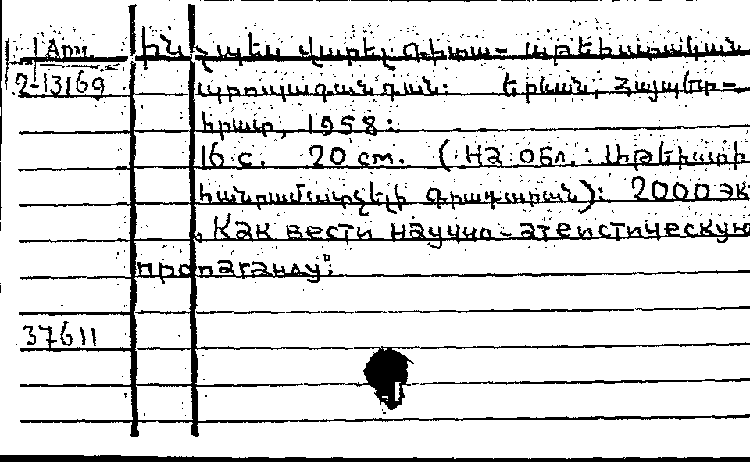 Арм. ԻՆչպես վարել գիտա-աթեիստական
2-13169 պրոպագանդան: Երևան, Հայպետ-
հրատ, 1958:
16 с. 20 см. (На обл.: Աթեիստի
հանրամատչելի գրադարան): 2000 эк
„Как вести научно-атеистическую
пропаганду":
37611